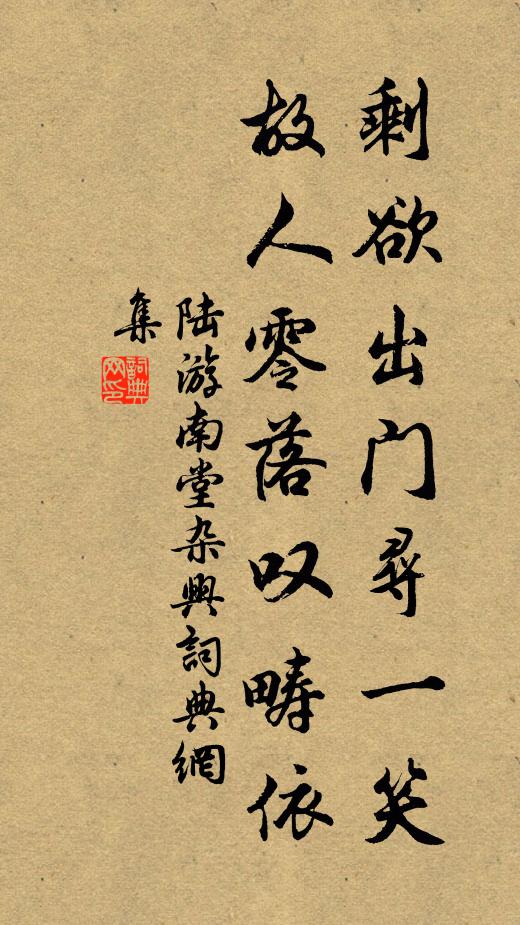 剩欲出門尋一笑
故人零落叹畴依
陆游南堂杂興詞典網
集
詞典网印